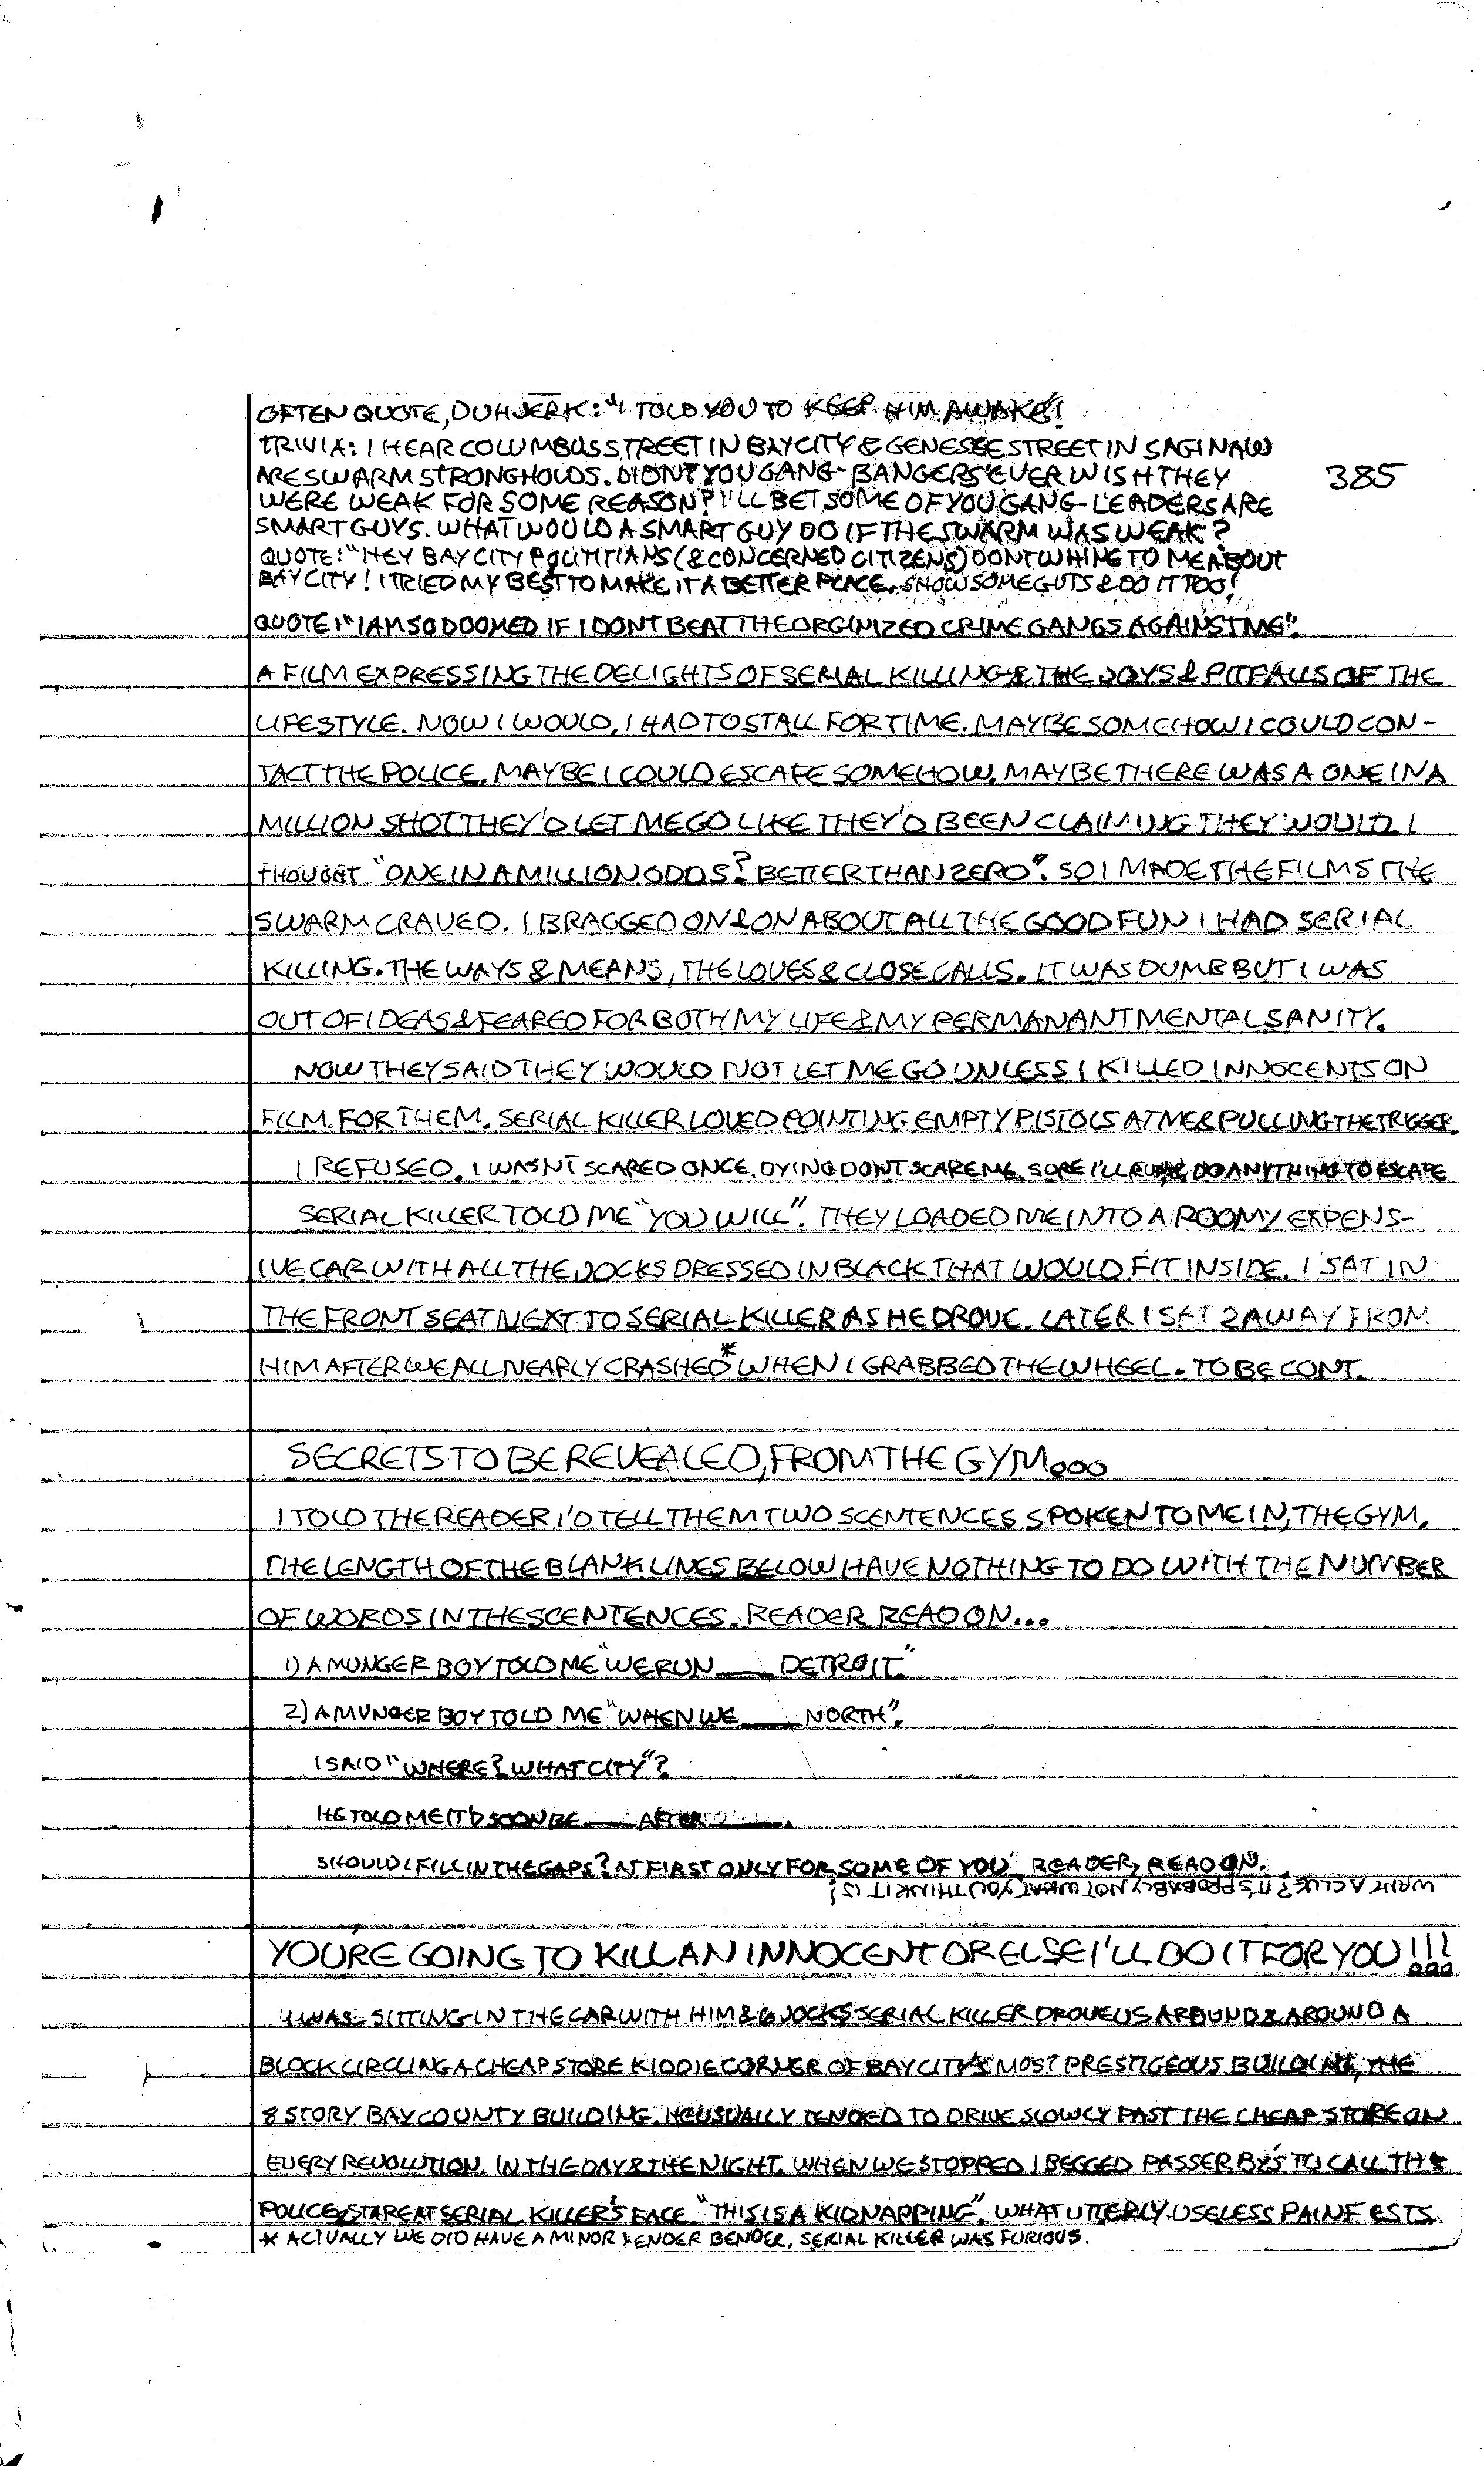 OFTEN QUOTE, DUH JERK: "I TOLD YOU TO KEEP HIM AWAKE"!
TRIVIA: I HEAR COLUMBUS STREET IN BAY CITY & GENESEE STREET IN SAGINAW
ARE SWARM STRONGHOLDS. DIDN'T YOU GANG-BANGERS EVER WISH THEY
385
WERE WEAK FOR SOME REASON? I'LL BET SOME OF YOU GANG-LEADERS ARE
SMART GUYS. WHAT WOULD A SMART GUY DO IF THE SWARM WAS WEAK?
QUOTE: "HEY BAY CITY POLITITIANS (& CONCERNED CITIZENS) DONT WHINE TO ME ABOUT
BAY CITY! I TRIED MY BEST TO MAKE IT A BETTER PLACE. SHOW SOME GUTS & DO IT TOO!
QUOTE: "I AM SO DOOMED IF I DONT BEAT THE ORGINIZED CRIME GANGS AGAINST ME".
A FILM EXPRESSING THE DELIGHTS OF SERIAL KILLING & THE JOYS & PITFALLS OF THE
LIFESTYLE. NOW I WOULD. I HAD TO STALL FOR TIME. MAYBE SOMEHOW I COULD CON-
TACT THE POLICE. MAYBE I COULD ESCAPE SOMEHOW. MAYBE THERE WAS A ONE IN A
MILLION SHOT THEY'D LET ME GO LIKE THEY'D BEEN CLAIMING THEY WOULD. I
THOUGHT "ONE IN A MILLION ODDS? BETTER THAN ZERO". SO I MADE THE FILMS THE
SWARM CRAVED. I BRAGGED ON & ON ABOUT ALL THE GOOD FUN I HAD SERIAL
KILLING. THE WAYS & MEANS, THE LOVES & CLOSE CALLS. IT WAS DUMB BUT I WAS
OUT OF IDEAS & FEARED FOR BOTH MY LIFE & MY PERMANANT MENTAL SANITY.
NOW THEY SAID THEY WOULD NOT LET ME GO UNLESS I KILLED INNOCENTS ON
FILM FOR THEM. SERIAL KILLER LOVED POINTING EMPTY PISTOLS AT ME & PULLING THE TRIGGER.
I REFUSED. I WASN'T SCARED ONCE. DYING DONT SCARE ME. SURE I'LL RUN & DO ANYTHING TO ESCAPE
SERIAL KILLER TOLD ME "YOU WILL". THEY LOADED ME INTO A ROOMY EXPENS-
IVE CAR WITH ALL THE JOCKS DRESSED IN BLACK THAT WOULD FIT INSIDE. I SAT IN
THE FRONT SEAT NEXT TO SERIAL KILLER AS HE DROVE. LATER I SAT 2 AWAY FROM
HIM AFTER WE ALL NEARLY CRASHED* WHEN I GRABBED THE WHEEL. TO BE CONT.
SECRETS TO BE REVEALED, FROM THE GYM...
I TOLD THE READER I'D TELL THEM TWO SCENTENCES SPOKEN TO ME IN THE GYM.
THE LENGTH OF THE BLANK LINES BELOW HAVE NOTHING TO DO WITH THE NUMBER
OF WORDS IN THE SCENTENCES. READER READ ON...
1) A MUNGER BOY TOLD ME "WE RUN ___ DETROIT."
2) A MUNGER BOY TOLD ME "WHEN WE ___ NORTH".
I SAID "WHERE? WHAT CITY"?
HE TOLD ME IT'D SOON BE ___ AFTER ___.
SHOULD I FILL IN THE GAPS? AT FIRST ONLY FOR SOME OF YOU READER, READ ON.
WANT A CLUE? IT'S PROBABLY NOT WHAT YOU THINK IT IS!
YOU'RE GOING TO KILL AN INNOCENT OR ELSE I'LL DO IT FOR YOU!!!
I WAS SITTING IN THE CAR WITH HIM & 6 JOCKS SERIAL KILLER DROVE US AROUND & AROUND A
BLOCK CIRCLING A CHEAP STORE KIDDIE CORNER OF BAY CITY'S MOST PRESTIGEOUS BUILDING, THE
8 STORY BAY COUNTY BUILDING. HE USUALLY TENDED TO DRIVE SLOWLY PAST THE CHEAP STORE ON
EVERY REVOLUTION. IN THE DAY & THE NIGHT. WHEN WE STOPPED I BEGGED PASSER BY'S TO CALL THE
POLICE & STARE AT SERIAL KILLER'S FACE. "THIS IS A KIDNAPPING". WHAT UTTERLY USELESS PAINF ESTS.
* ACTUALLY WE DID HAVE A MINOR FENDER BENDER, SERIAL KILLER WAS FURIOUS.